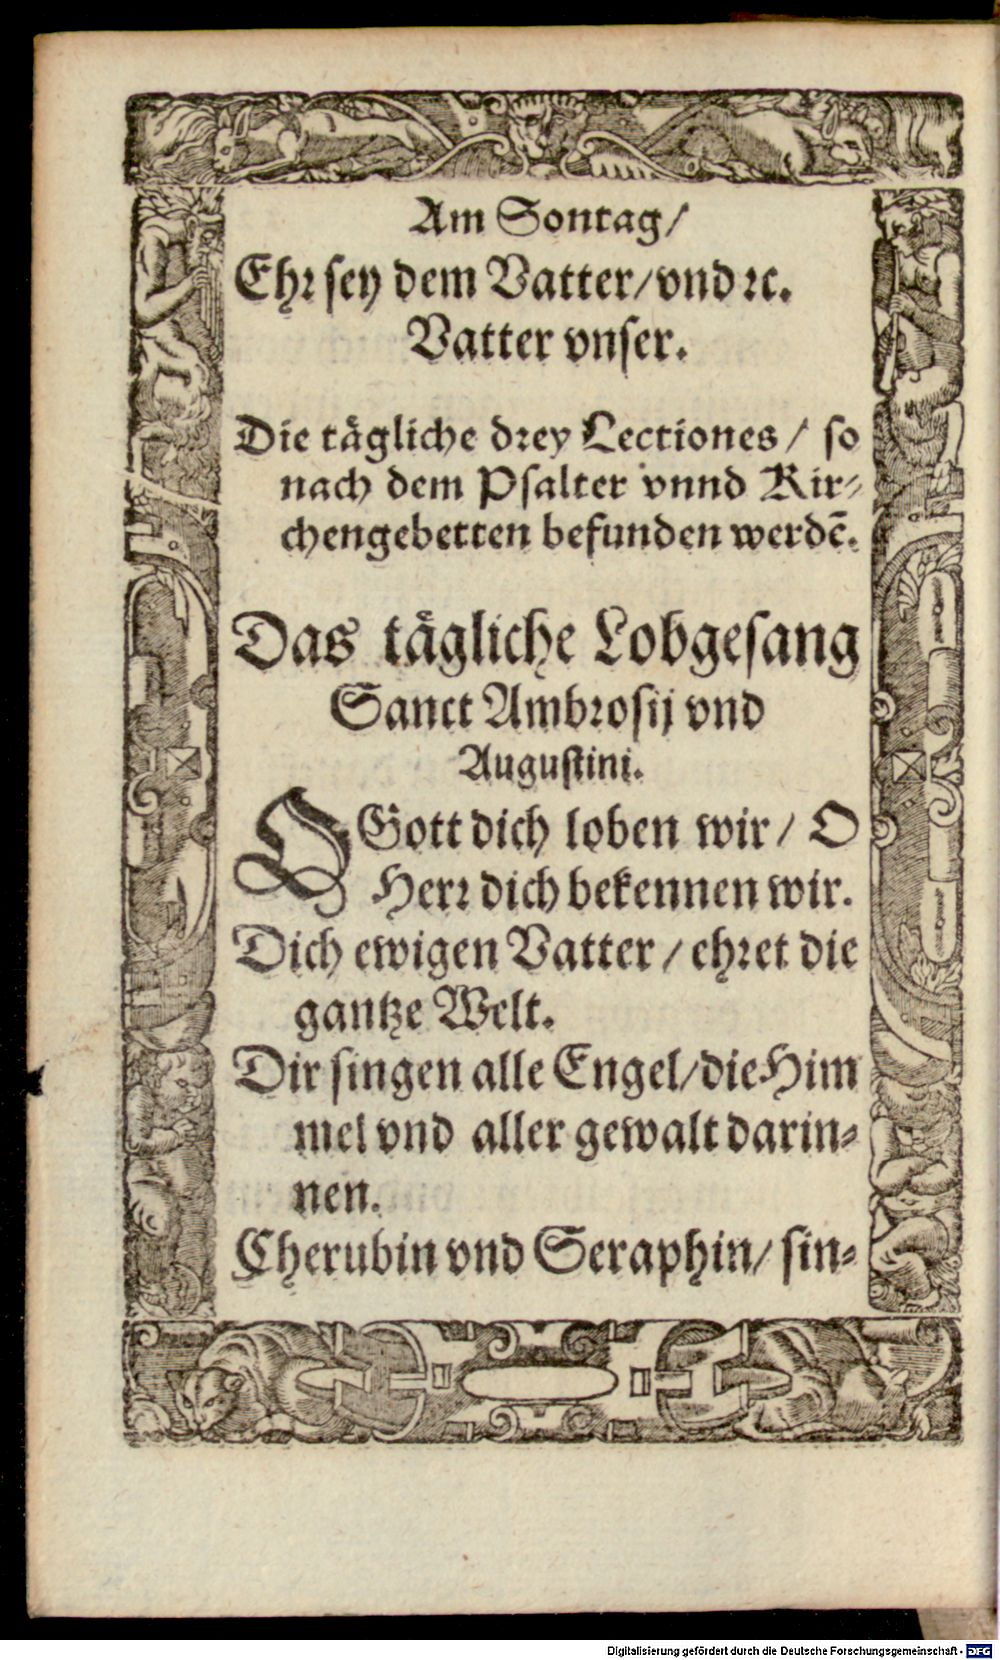 Am Sontag/
Ehr sey dem Vatter/vnd ꝛc.
Vatter vnser.
Die tägliche drey Lectiones / so
nach dem Psalter vnnd Kir-
chengebetten befunden werdē.
Das tägliche Lobgesang
Sanct Ambrosij vnd
Augustini.
O Gott dich loben wir / O
Herr dich bekennen wir.
Dich ewigen Vatter / ehret die
gantze Welt.
Dir singen alle Engel/die Him
mel vnd aller gewalt darin-
nen.
Cherubin vnd Seraphin/ sin-
Digitalisierung gefördert durch die Deutsche Forschungsgemeinschaft - DFG